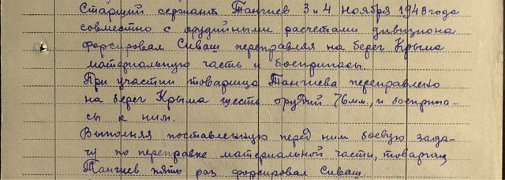 Старший сержант Тангиев 3 и 4 ноября 1943 года
совместно с орудийными расчетами дивизиона
форсировал Сиваш переправляя на берег Крыма
материальную часть и боеприпасы.
При участии товарища Тангиева переправлено
на берег Крыма шесть орудий 76 мм, и боеприпа-
сы к ним.
Выполняя поставленную перед ним боевую зада-
чу по переправке материальной части, товарищ
Тангиев пять раз форсировал Сиваш.